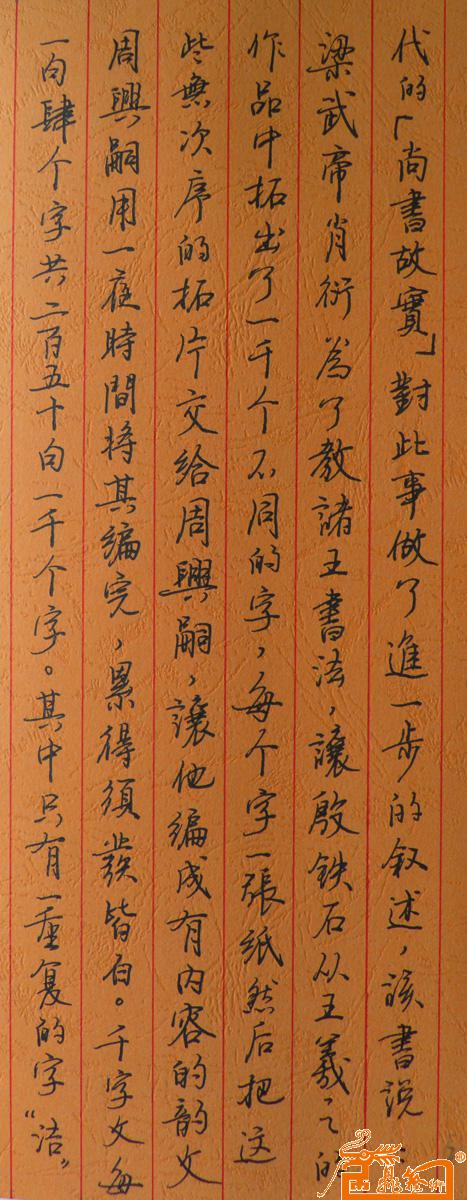 代的「尚書故實」對此事做了進一步的叙述，該書說：
梁武帝肖衍為了教諸王書法，讓殷铁石从王羲之的
作品中拓出了一千个不同的字，每个字一張紙然后把这
些無次序的拓片交给周興嗣，讓他编成有内容的韵文
周興嗣用一夜時間將其编完，累得須發皆白。千字文每
一句肆个字共二百五十句一千个字。其中只有一重复的字“洁”